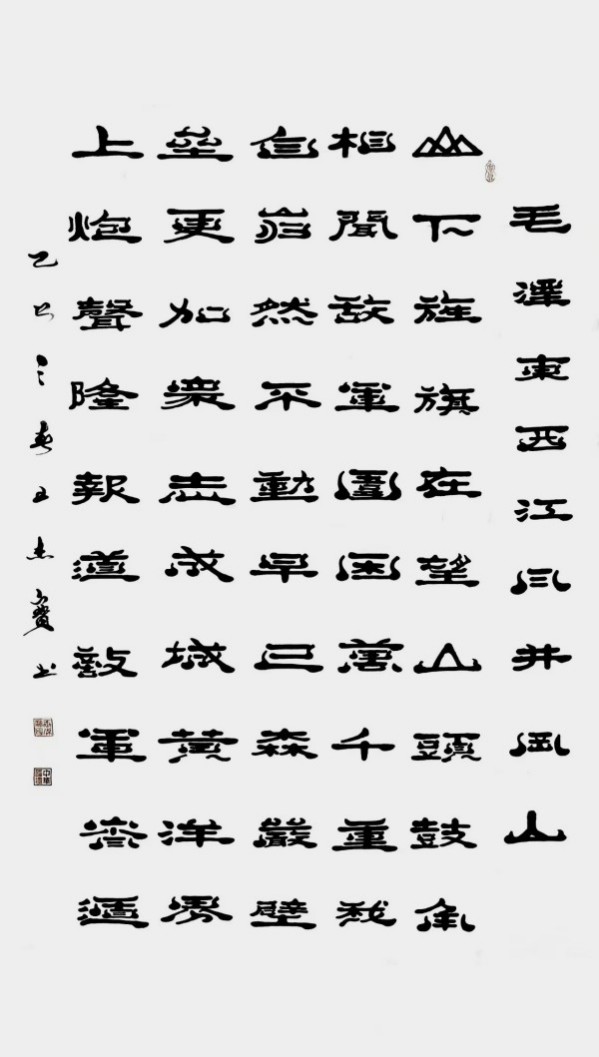 毛澤東西江月井岡山
山下旌旗在望山頭鼓角
相聞敌軍圍困萬千重我
自巋然不動早已森嚴壁
壘更加衆志成城黃洋界
上炮聲隆報道敵軍宵遁
乙巳之春王杰賓书